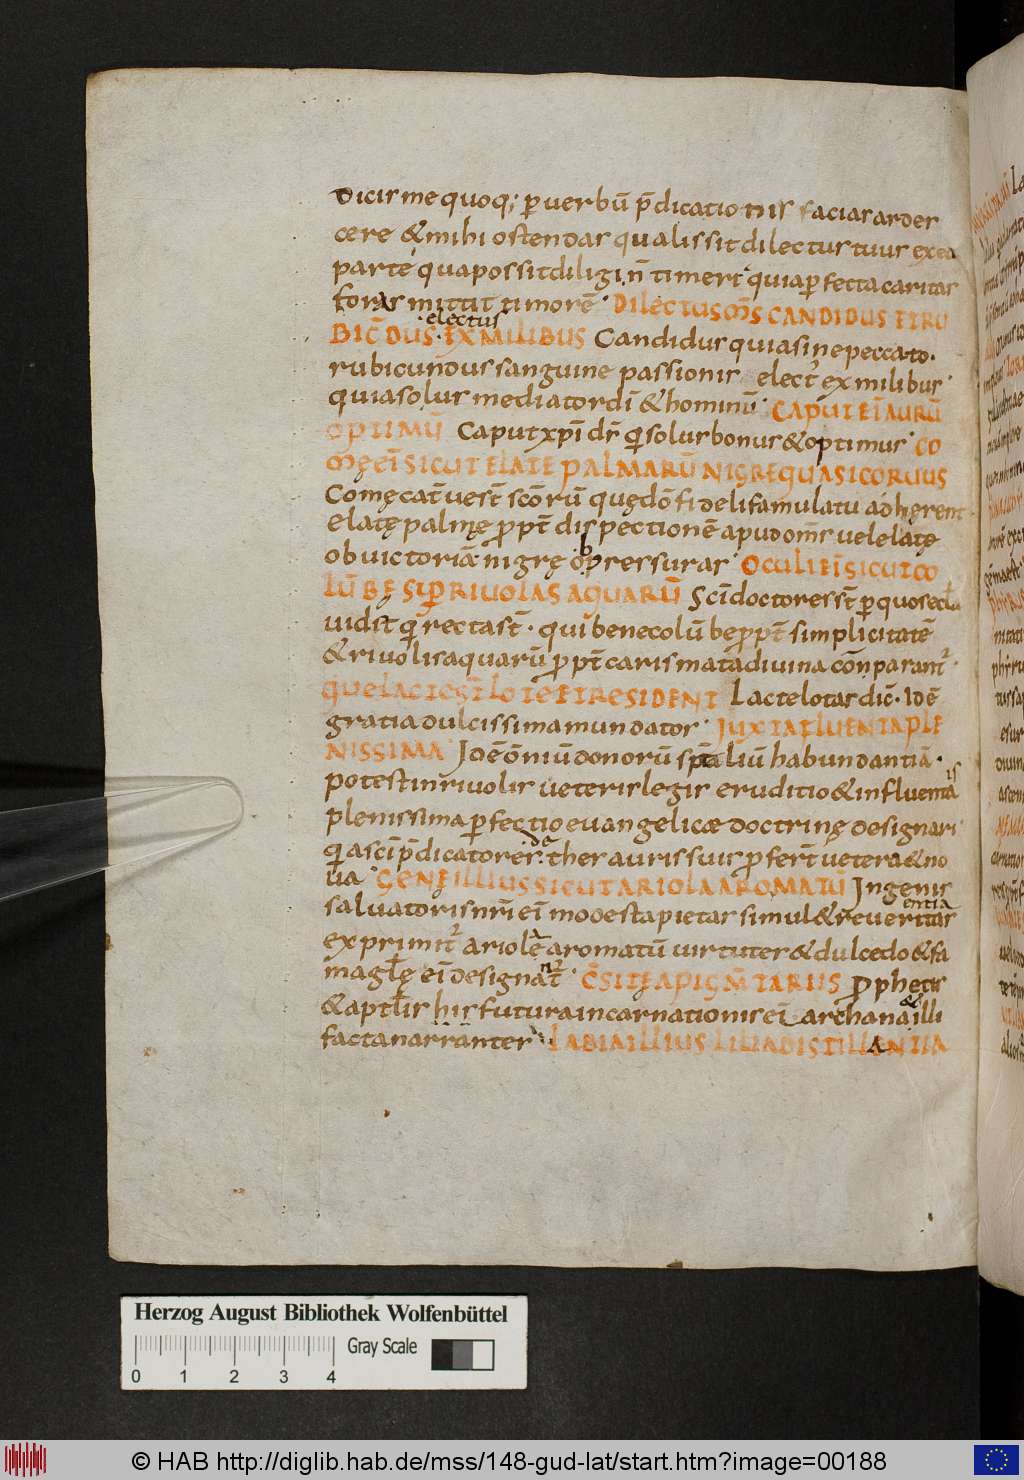 dicis me quoq; p̱ uerbū p̄dicationis facias arder
cere & mihi ostendas qualis sit dilectus tuus ex ea
parte qua possit diligi. n̄ timeri quia p̱fecta caritas
foras mittit timorē. DILECTUS M̄S CANDIDUS ET RU
BIC̄DUS. electus EX MILIBUS Candidus quia sine peccato.
rubicundus sanguine passionis elect᷒ ex milibus
quia solus mediator dī & hominū. CAPUT EI᷒ AURŪ
OPTIMŪ Caput xp̄i d̄s q̄ solus bonus & optimus. CO
MĘ EI᷒ SICUT ELATE PALMARŪ NIGRE QUASI CORUUS
Comę cat̄ues̄t sc̄orū quę dō fideli famulatu adhęrent
elatę palmę p̱pt̄ dispectionē apud om̄s uel elatę
ob uictoriā nigrę ob pressuras. OCULI EI᷒ SICUT CO
LŪBĘ SUP̱ RIUOLAS AQUARŪ Sc̄i doctores s̄t p̱ quos eccl̄a
uidit q̄ recta s̄t. qui bene colūbe p̱pt̄ simplicitatē
& riuolis aquarū p̱pt̄ carismata diuina cōnparant᷒.
QUE LACTE S̄T LOTE ET RESIDENT Lacte lotas dic̄. Idē
gratia dulcissima mundator. IUXTA FLUENTA PLE
NISSIMA Idē ōniū donorū sp̄taliū habundantiā.
potest in riuolis ueteris legis eruditio & in fluentis
plenissima p̱fectio euangelicæ doctrinę designari
q̄a sc̄i p̄dicatores de thesauris suis p̱fert̄ uetera & no
ua. GENE ILLIUS SICUT ARIOLA AROMATŪ In genis
saluatoris nr̄i ei᷒ modesta pietas simul & reuerentia
exprimit᷒ ariolę aromatū uirtutes & dulcedo & fa
magl̄ę ei᷒ designant᷒. C̄SITĘ A PIGM̄TARIIS Prophetis
& apt̄lis his futura incarnationis ei᷒ & archana illi
facta narrantes. LABIA ILLIUS LILIA DISTILLANTIA
Herzog August Bibliothek Wolfenbüttel
Gray Scale
0 1 2 3 4
© HAB http://diglib.hab.de/mss/148-gud-lat/start.htm?image=00188